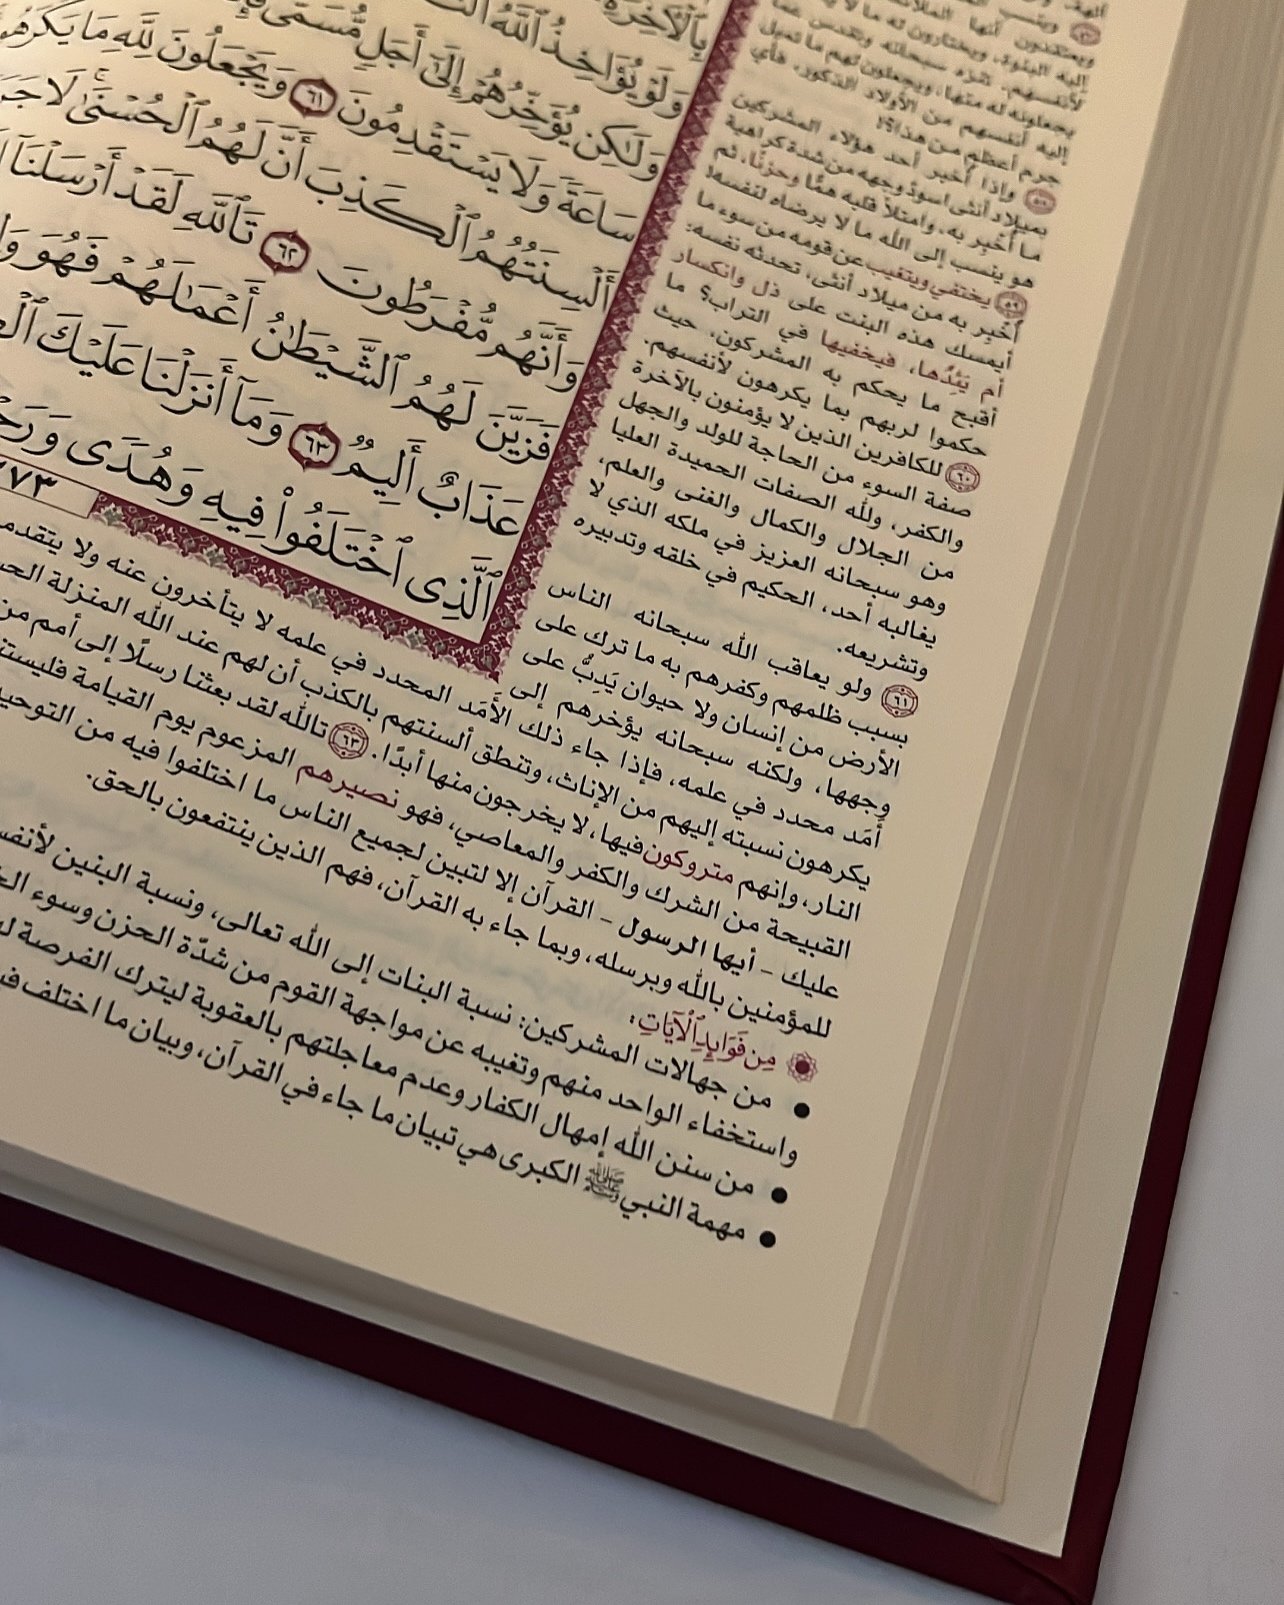 بِٱلْأٓخِرَةِ
وَلَوْ يُؤَاخِذُ ٱللَّهُ
وَلَٰكِن يُؤَخِّرُهُمْ إِلَىٰٓ أَجَلٍ مُّسَمًّى
سَاعَةً وَلَا يَسْتَقْدِمُونَ ٦١ وَيَجْعَلُونَ لِلَّهِ مَا يَكْرَهُ
أَلْسِنَتُهُمُ ٱلْكَذِبَ أَنَّ لَهُمُ ٱلْحُسْنَىٰ لَا جَرَ
وَأَنَّهُم مُّفْرَطُونَ ٦٢ تَٱللَّهِ لَقَدْ أَرْسَلْنَآ
فَزَيَّنَ لَهُمُ ٱلشَّيْطَٰنُ أَعْمَٰلَهُمْ فَهُوَ
عَذَابٌ أَلِيمٌ ٦٣ وَمَآ أَنزَلْنَا عَلَيْكَ
ٱلَّذِى ٱخْتَلَفُوا۟ فِيهِ وَهُدًى وَرَحْ
٧٣
إليه البنوة، ويختارون له ما لا
لأنفسهم. تنزه سبحانه وتقدس عما
يجعلونه له منها، ويجعلون لهم ما تميل
إليه أنفسهم من الأولاد الذكور، فأي
جرم أعظم من هذا؟!
٥٨ وإذا أُخبِر أحد هؤلاء المشركين
بميلاد أنثى اسودّ وجهه من شدة كراهية
ما أُخبِر به، وامتلأ قلبه همًّا وحزنًا، ثم
هو ينسب إلى الله ما لا يرضاه لنفسه!
٥٩ يختفي ويتغيب عن قومه من سوء ما
أُخبِر به من ميلاد أنثى، تحدثه نفسه:
أيمسك هذه البنت على ذل وانكسار
أم يَئِدُها، فيخفيها في التراب؟ ما
أقبح ما يحكم به المشركون، حيث
حكموا لربهم بما يكرهون لأنفسهم.
٦٠ للكافرين الذين لا يؤمنون بالآخرة
صفة السوء من الحاجة للولد والجهل
والكفر، ولله الصفات الحميدة العليا
من الجلال والكمال والغنى والعلم،
وهو سبحانه العزيز في ملكه الذي لا
يغالبه أحد، الحكيم في خلقه وتدبيره
وتشريعه.
٦١ ولو يعاقب الله سبحانه الناس
بسبب ظلمهم وكفرهم به ما ترك على
الأرض من إنسان ولا حيوان يَدِبُّ على
وجهها، ولكنه سبحانه يؤخرهم إلى
أَمَد محدد في علمه، فإذا جاء ذلك الأَمَد المحدد في علمه لا يتأخرون عنه ولا يتقدمو
يكرهون نسبته إليهم من الإناث، وتنطق ألسنتهم بالكذب أن لهم عند الله المنزلة
النار، وإنهم متروكون فيها، لا يخرجون منها أبدًا. ٦٣ تالله لقد بعثنا رسلًا إلى أمم من
القبيحة من الشرك والكفر والمعاصي، فهو نصيرهم المزعوم يوم القيامة
عليك - أيها الرسول - القرآن إلا لتبين لجميع الناس ما اختلفوا فيه من التوحيد
للمؤمنين بالله وبرسله، وبما جاء به القرآن، فهم الذين ينتفعون بالحق.
مِن فَوَائِدِ ٱلْآيَاتِ:
● من جهالات المشركين: نسبة البنات إلى الله تعالى، ونسبة البنين لأنفس
واستخفاء الواحد منهم وتغيبه عن مواجهة القوم من شدّة الحزن وسوء
● من سنن الله إمهال الكفار وعدم معاجلتهم بالعقوبة ليترك الفرصة
● مهمة النبي ﷺ الكبرى هي تبيان ما جاء في القرآن، وبيان ما اختلف